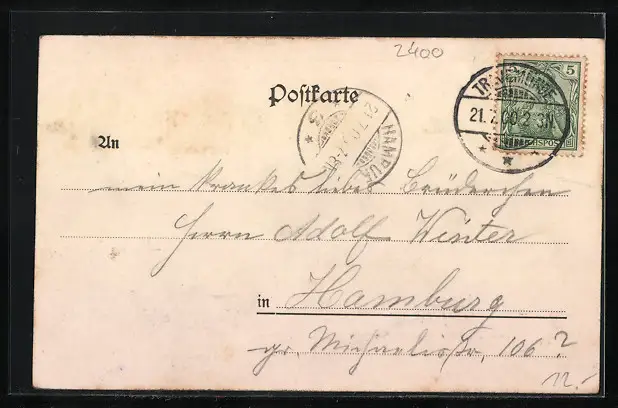 2400
Postkarte
5
TRAVEMÜNDE
21.7.00.2-3N
REICHSPOST
HAMBURG
An
mein krankes liebes Brüderchen
Herrn Adolf Winter
in Hamburg
gr. Michaelisstr. 106?
12.-